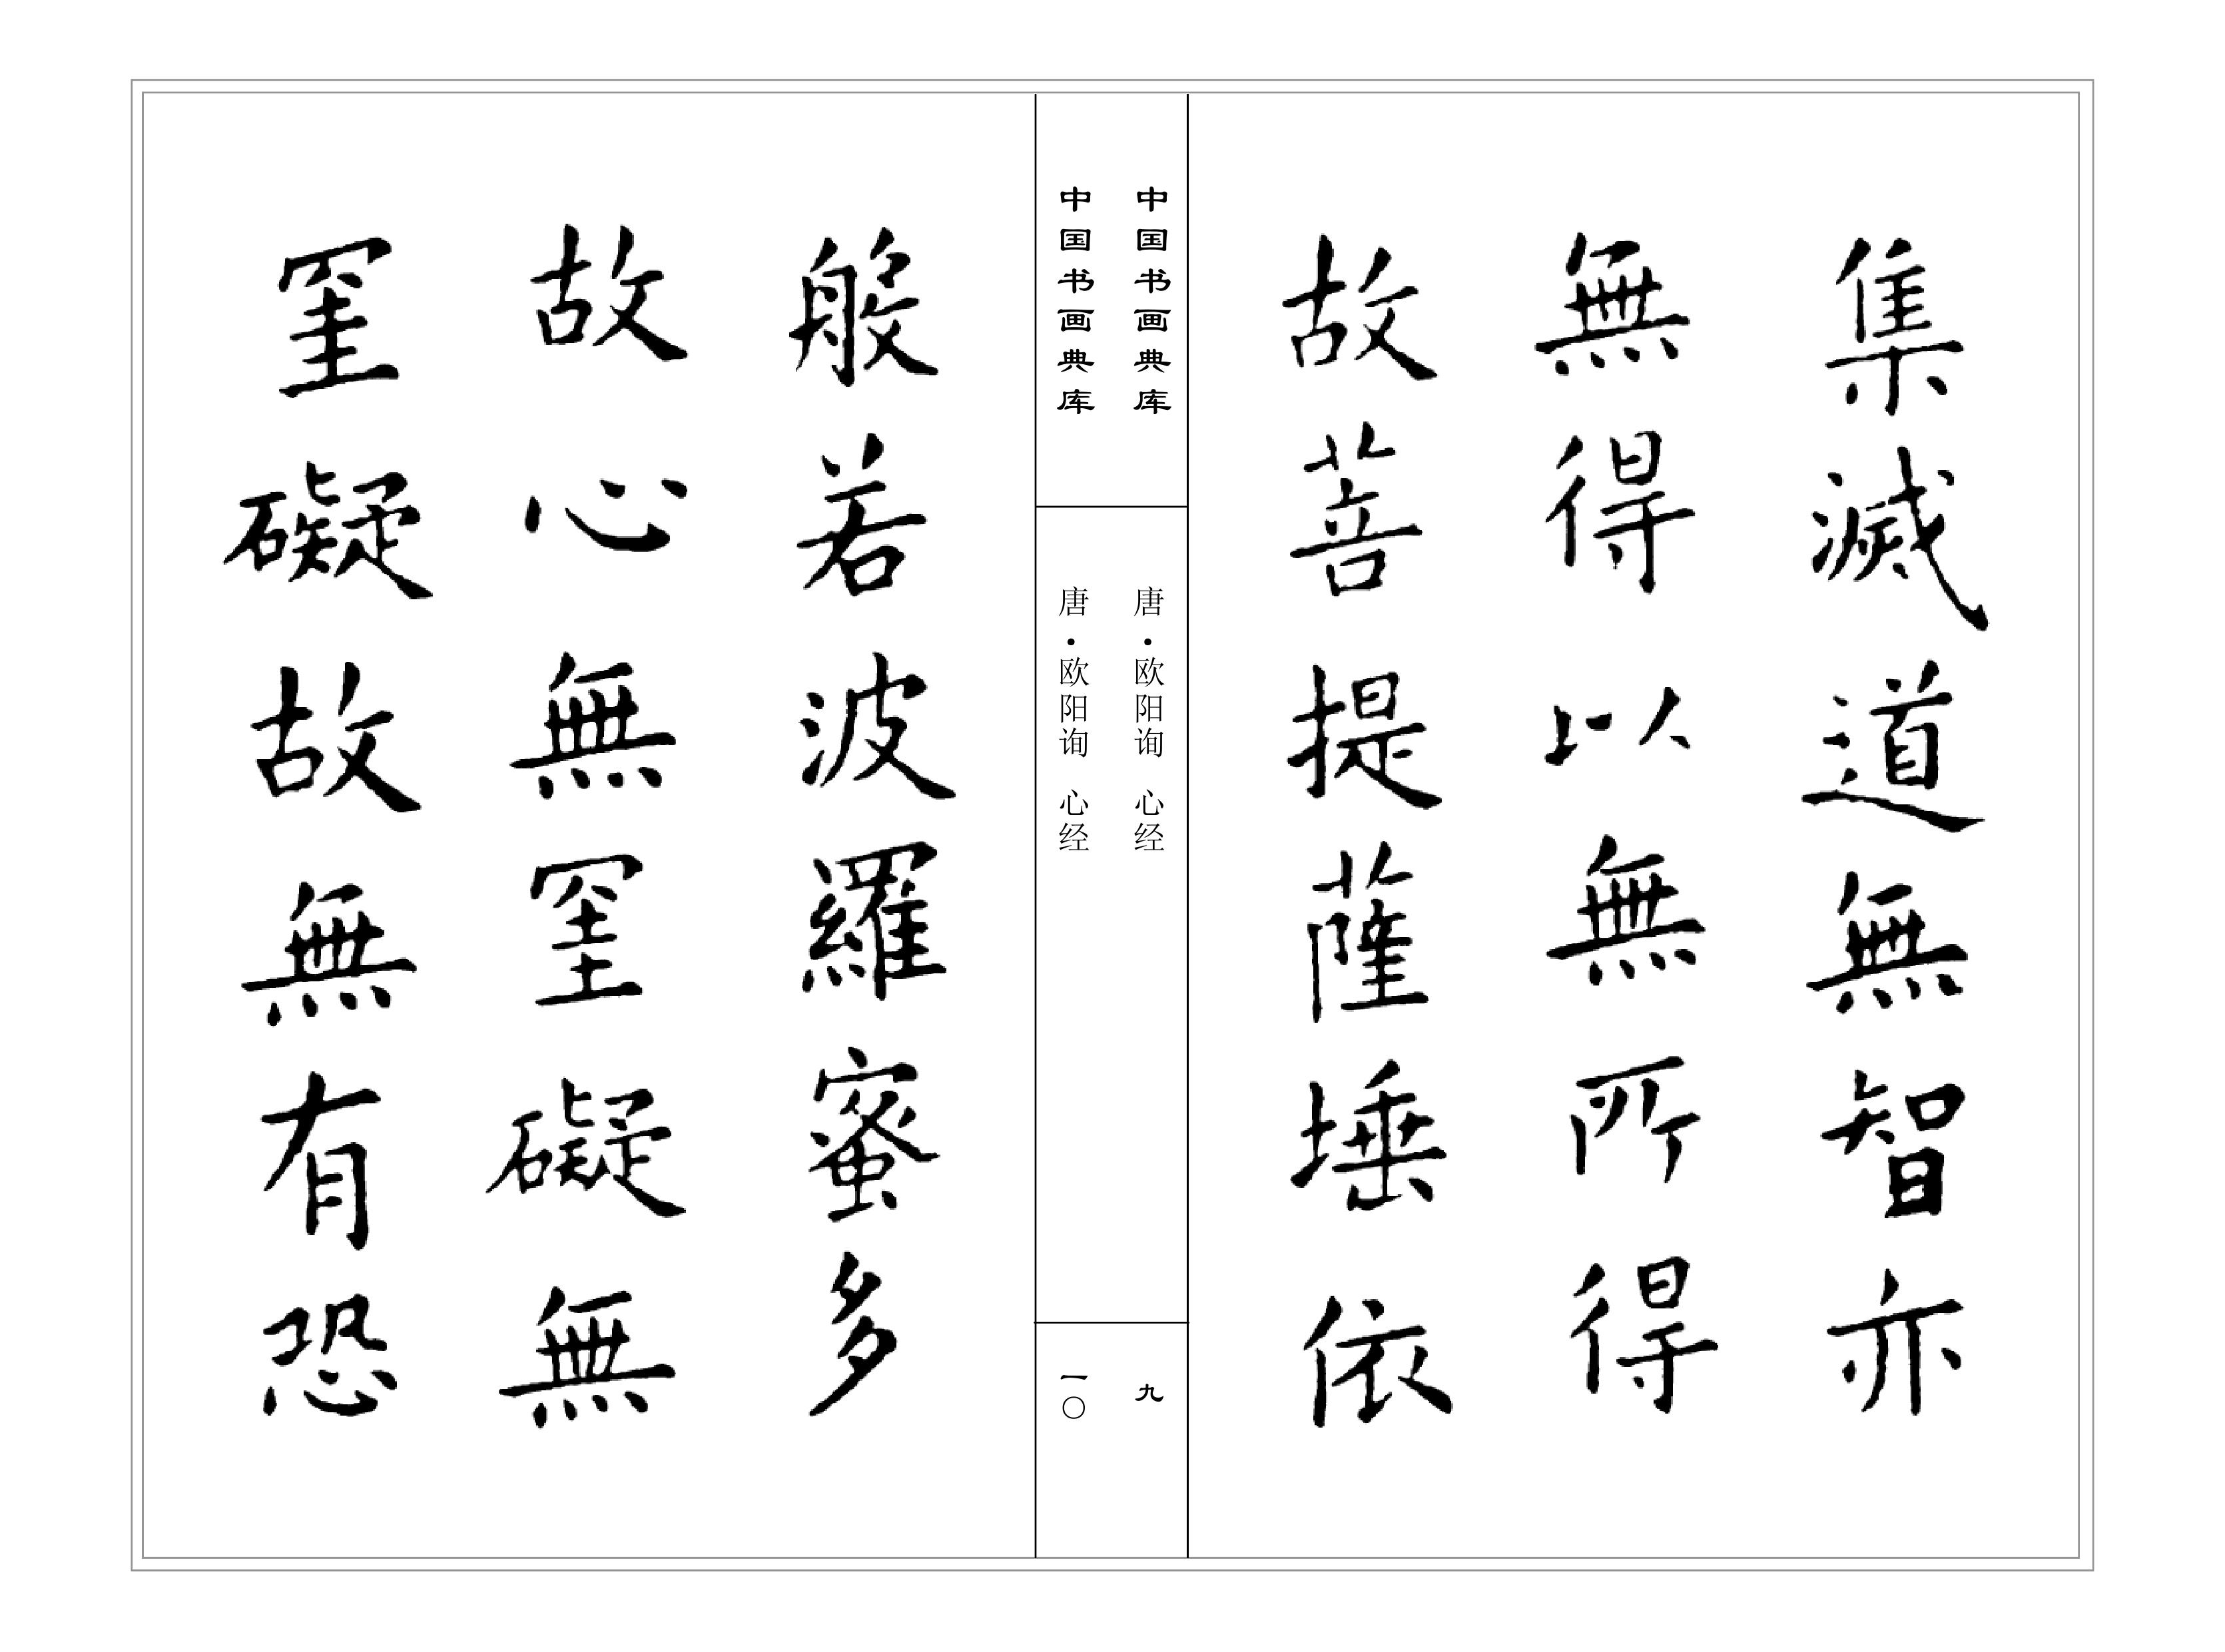 集滅道無智亦
無得以無所得
故菩提薩埵依
中国书画典库
唐·欧阳询 心经
九
中国书画典库
唐·欧阳询 心经
一〇
般若波羅蜜多
故心無罣礙無
罣礙故無有恐